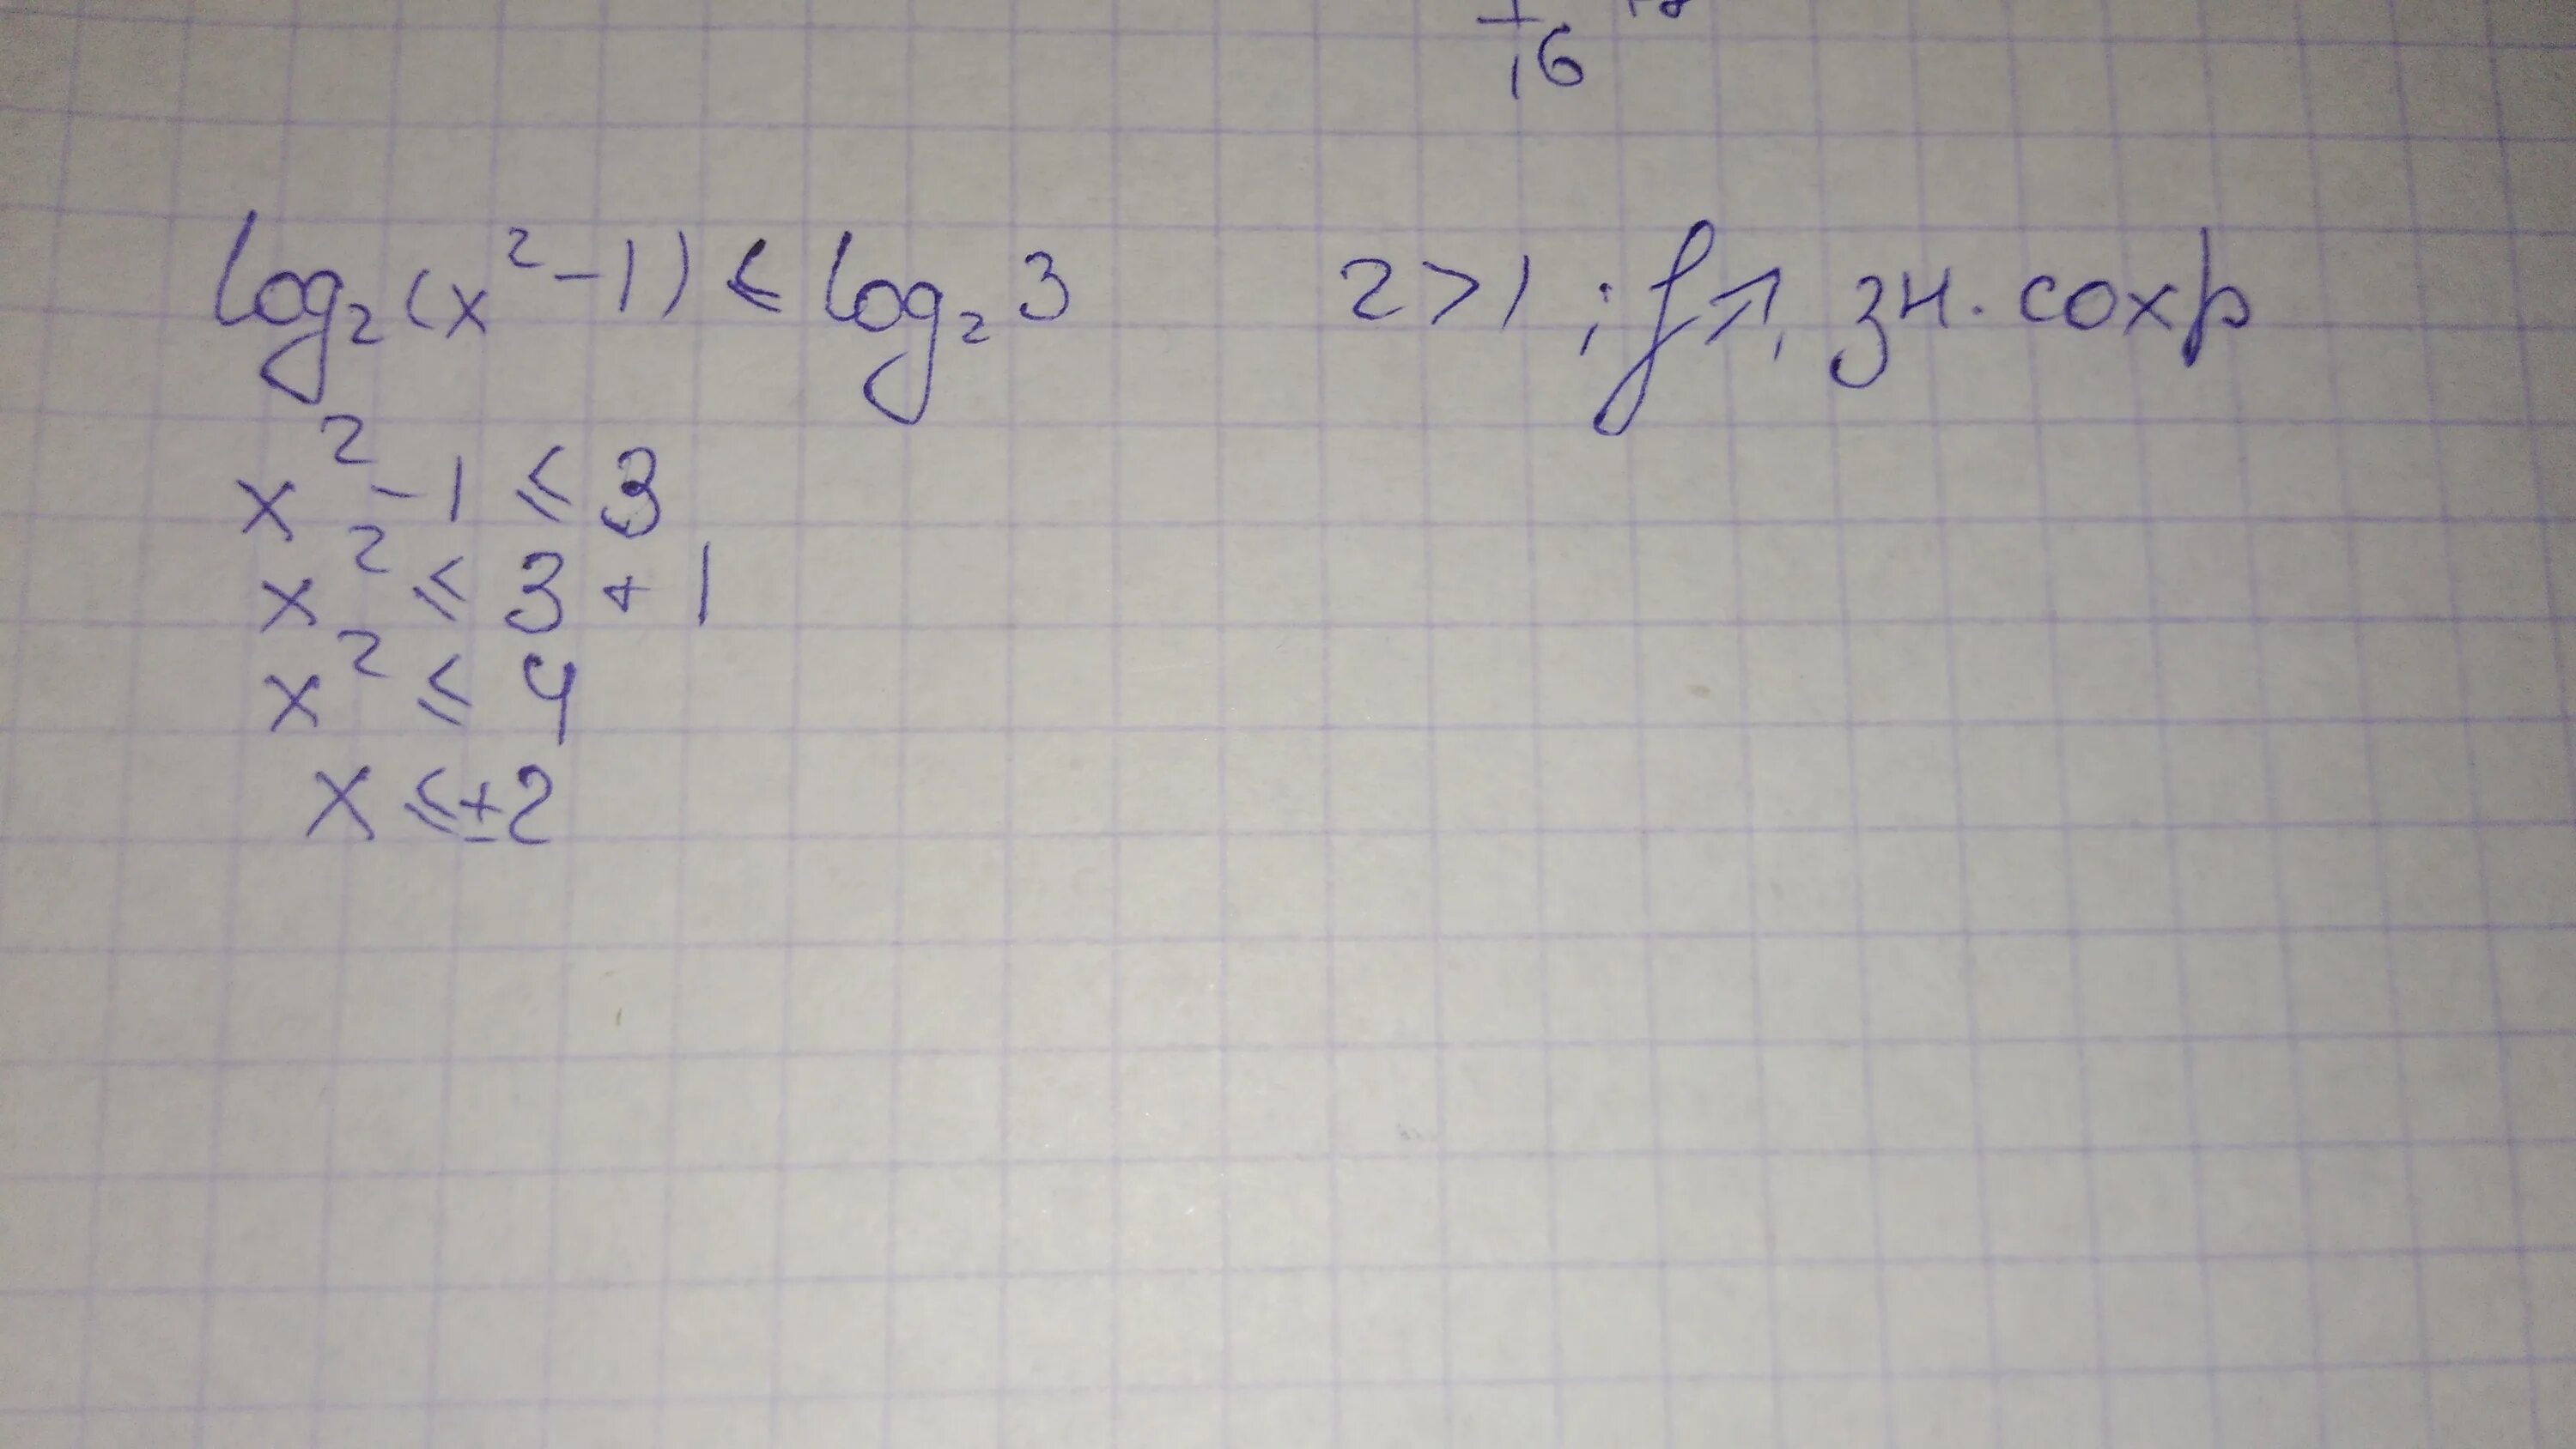 1/16
log₂(x²-1) ⩽ log₂3 2>1 ; f↗, зн. сохр
x²-1 ⩽ 3
x² ⩽ 3 + 1
x² ⩽ 4
x ⩽ ±2